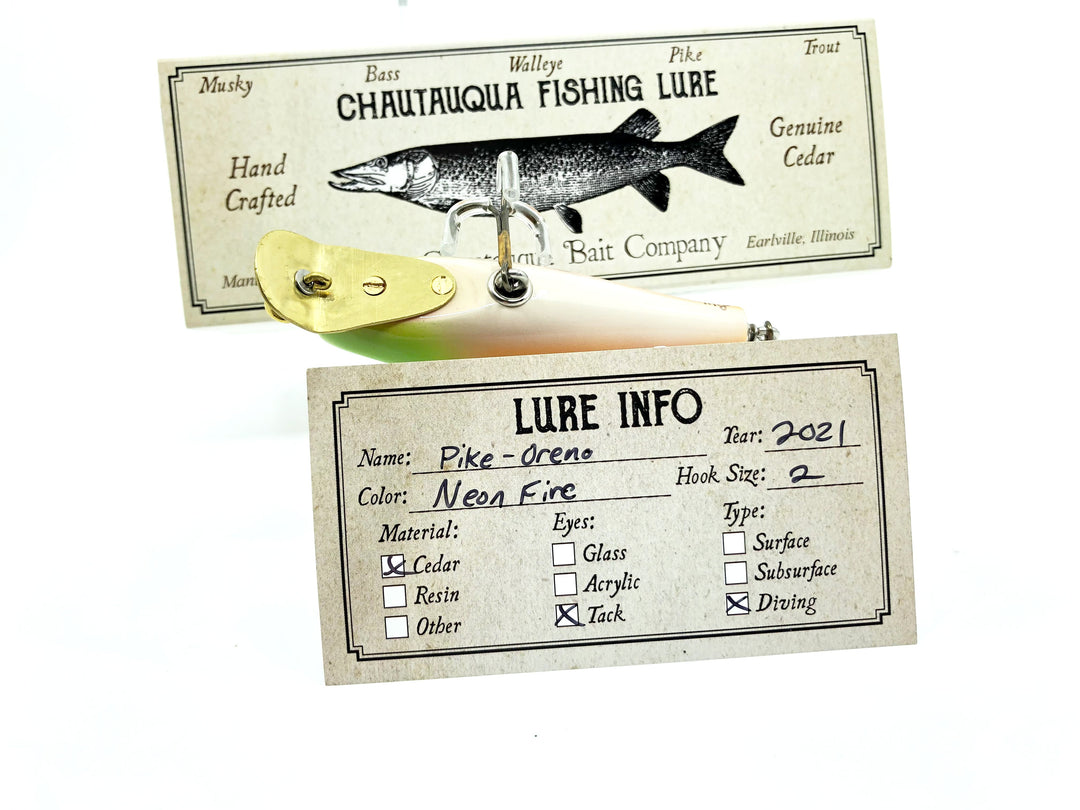 Musky Bass Walleye Pike Trout
CHAUTAUQUA FISHING LURE
Hand Crafted
Genuine Cedar
Bait Company
Earlville, Illinois
LURE INFO
Name: Pike-Oreno
Year: 2021
Color: Neon Fire
Hook Size: 2
Material:
Cedar
Resin
Other
Eyes:
Glass
Acrylic
Tack
Type:
Surface
Subsurface
Diving